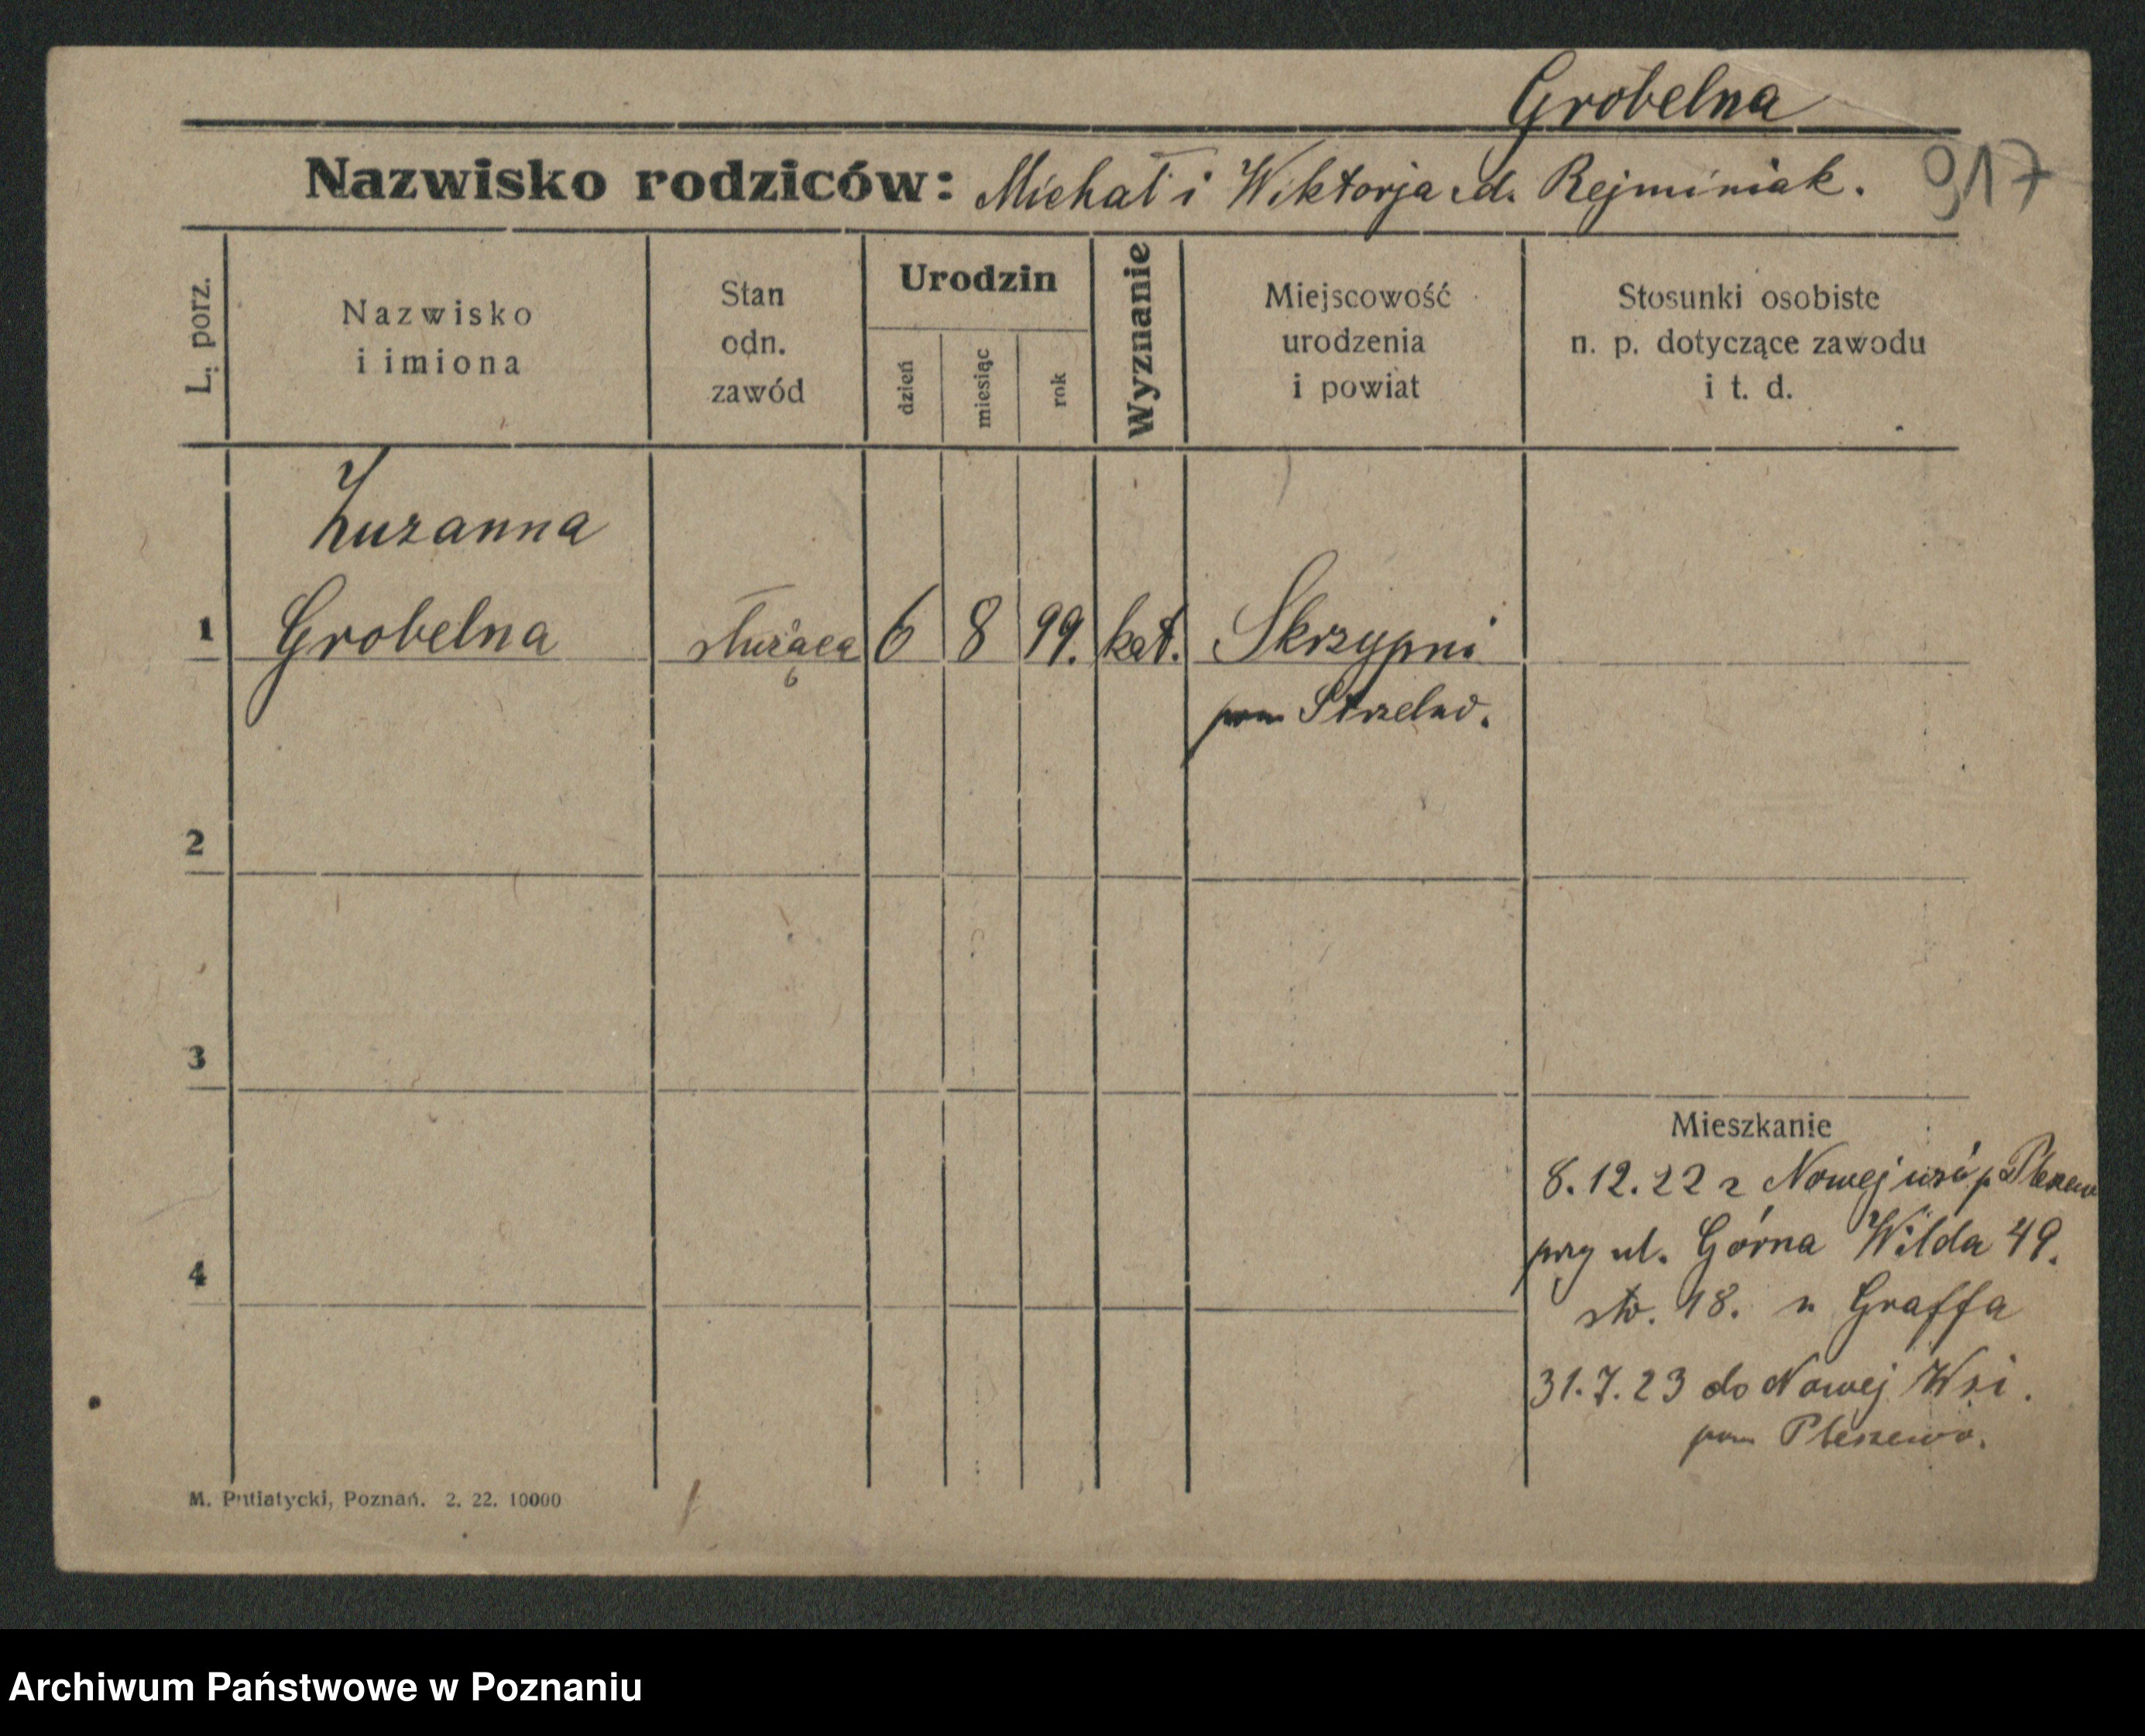 Grobelna
Nazwisko rodziców: Michał i Wiktorja d. Rejminiak.
917
L. porz.
Nazwisko
i imiona
Stan
odn.
zawód
Urodzin
dzień
miesiąc
rok
Wyznanie
Miejscowość
urodzenia
i powiat
Stosunki osobiste
n. p. dotyczące zawodu
i t. d.
Zuzanna
1 Grobelna służąca 6 8 99. kat. Skrzypni
pow Strzelno.
2
3
Mieszkanie
8.12.22 z Nowej wsi p Pleszew
przy ul. Górna Wilda 49.
4
str. 18. u Graffa
31.7.23 do Nowej Wsi.
pow Pleszewo.
M. Putiatycki, Poznań. 2. 22. 10000
Archiwum Państwowe w Poznaniu